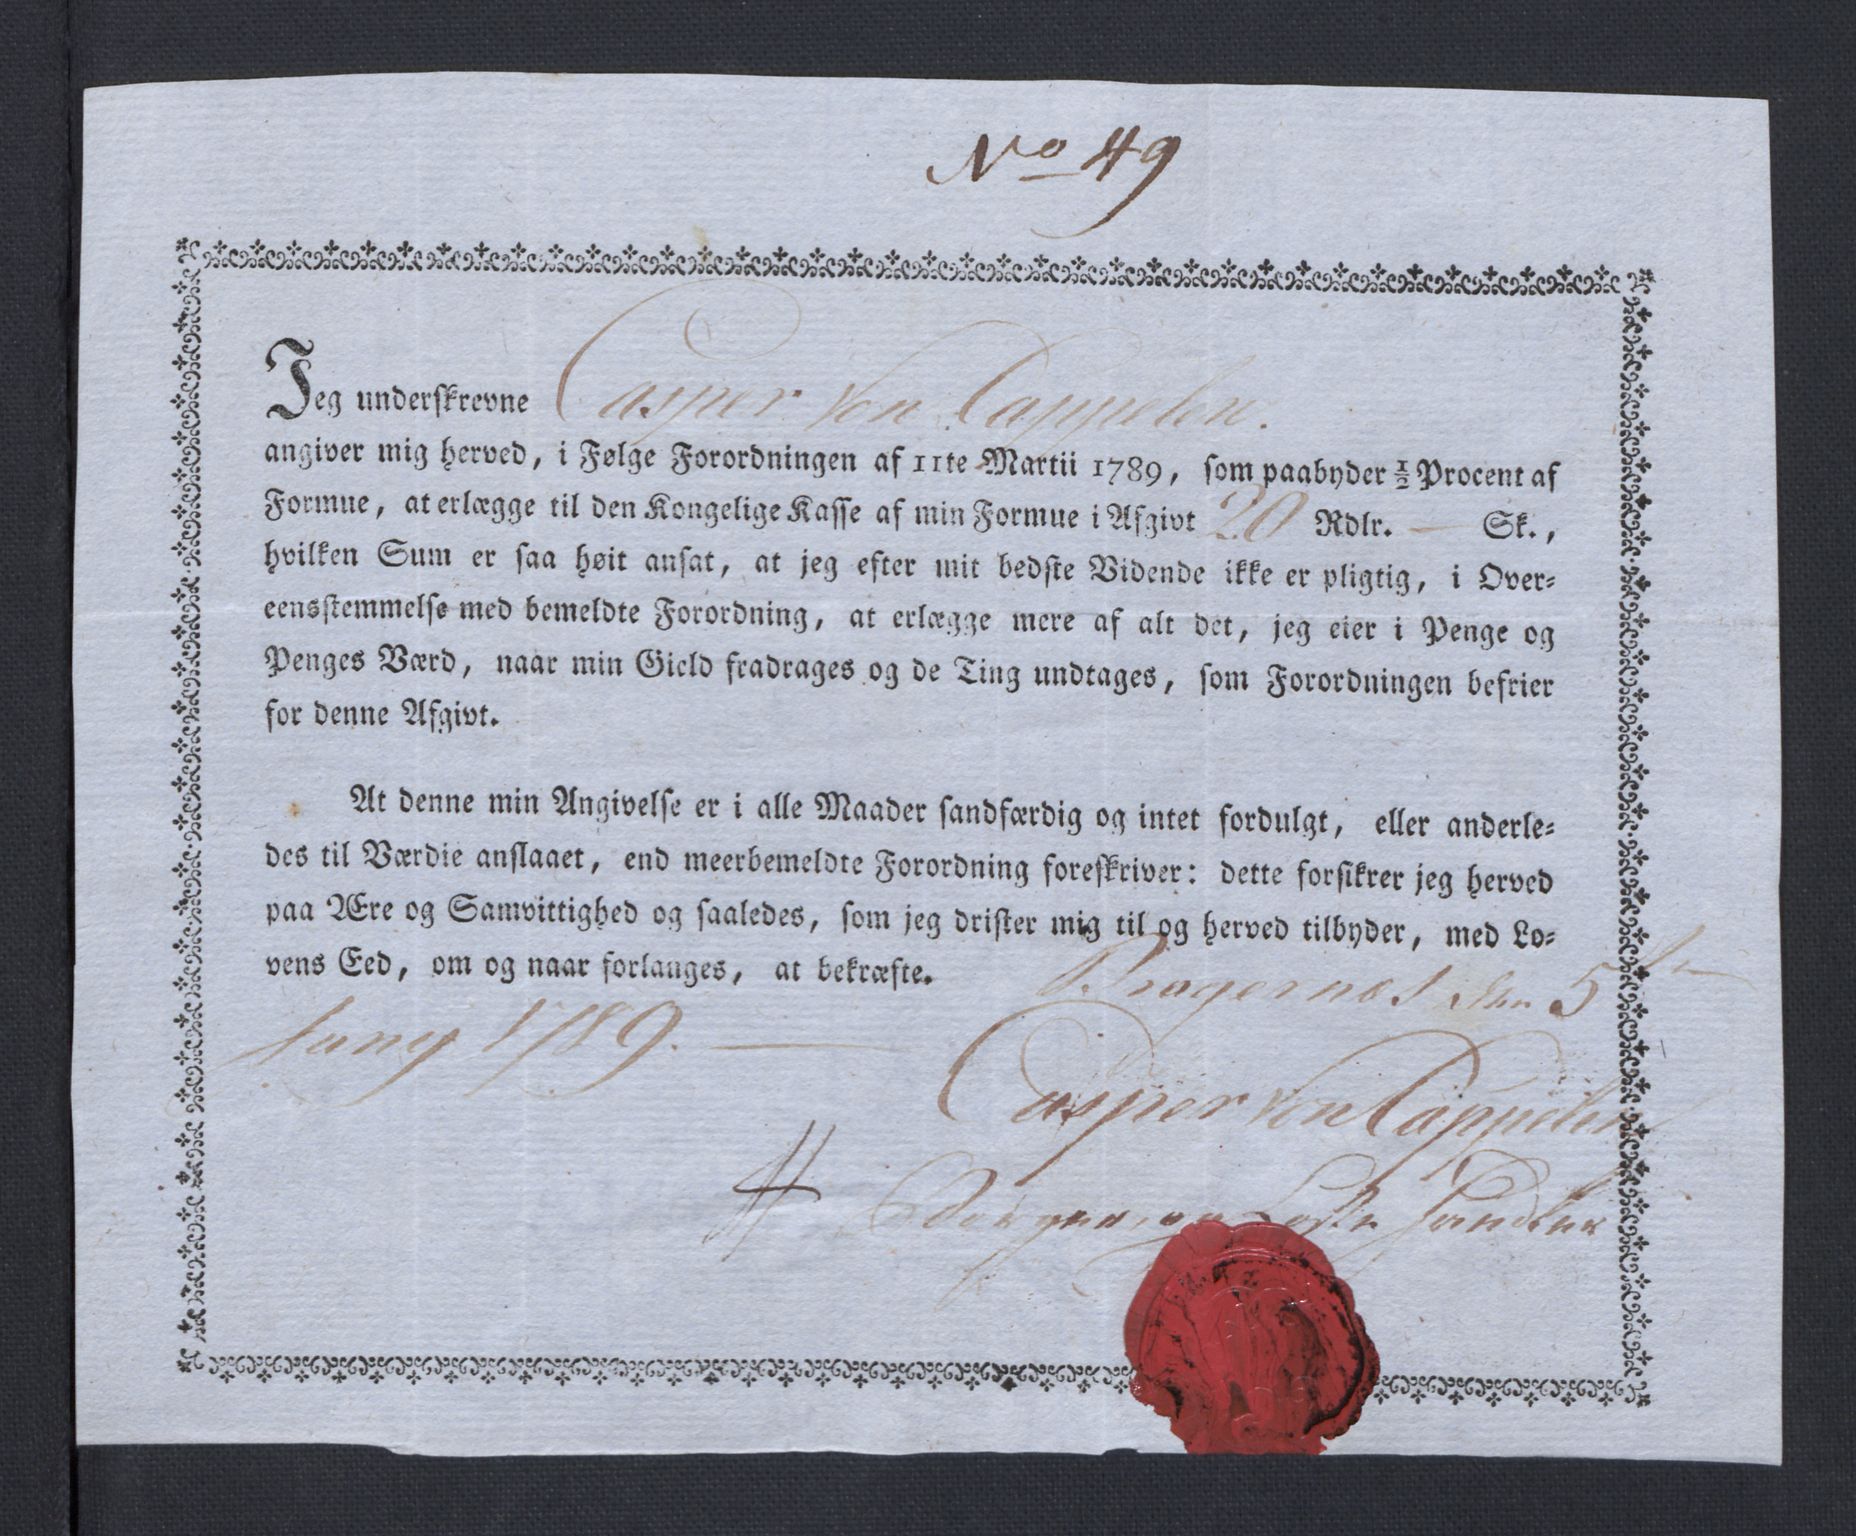 No 49
Jeg underskrevne Casper von Cappelen.
angiver mig herved, i Følge Forordningen af 11te Martii 1789, som paabyder ½ Procent af
Formue, at erlægge til den Kongelige Kasse af min Formue i Afgivt 20 Rdlr. — Sk.,
hvilken Sum er saa høit ansat, at jeg efter mit bedste Vidende ikke er pligtig, i Over=
eensstemmelse med bemeldte Forordning, at erlægge mere af alt det, jeg eier i Penge og
Penges Værd, naar min Gield fradrages og de Ting undtages, som Forordningen befrier
for denne Afgivt.
At denne min Angivelse er i alle Maader sandfærdig og intet fordulgt, eller anderle=
des til Værdie anslaaet, end meerbemeldte Forordning foreskriver: dette forsikrer jeg herved
paa Ære og Samvittighed og saaledes, som jeg drister mig til og herved tilbyder, med Lo=
vens Eed, om og naar forlanges, at bekræfte.
Bragernes den 5te
Juny 1789. —
Casper von Cappelen
Borger og